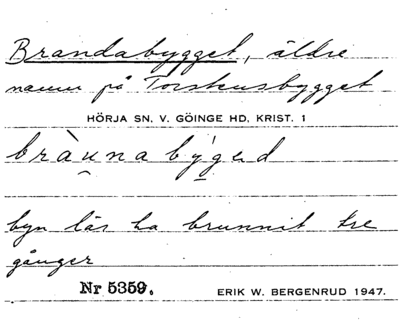 Brandabygget, äldre
namn på Torstensbygget
HÖRJA SN. V. GÖINGE HD, KRIST. 1
bràu̯nabýgɛd
byn lär ha brunnit tre
gånger
Nr 5359.
ERIK W. BERGENRUD 1947.